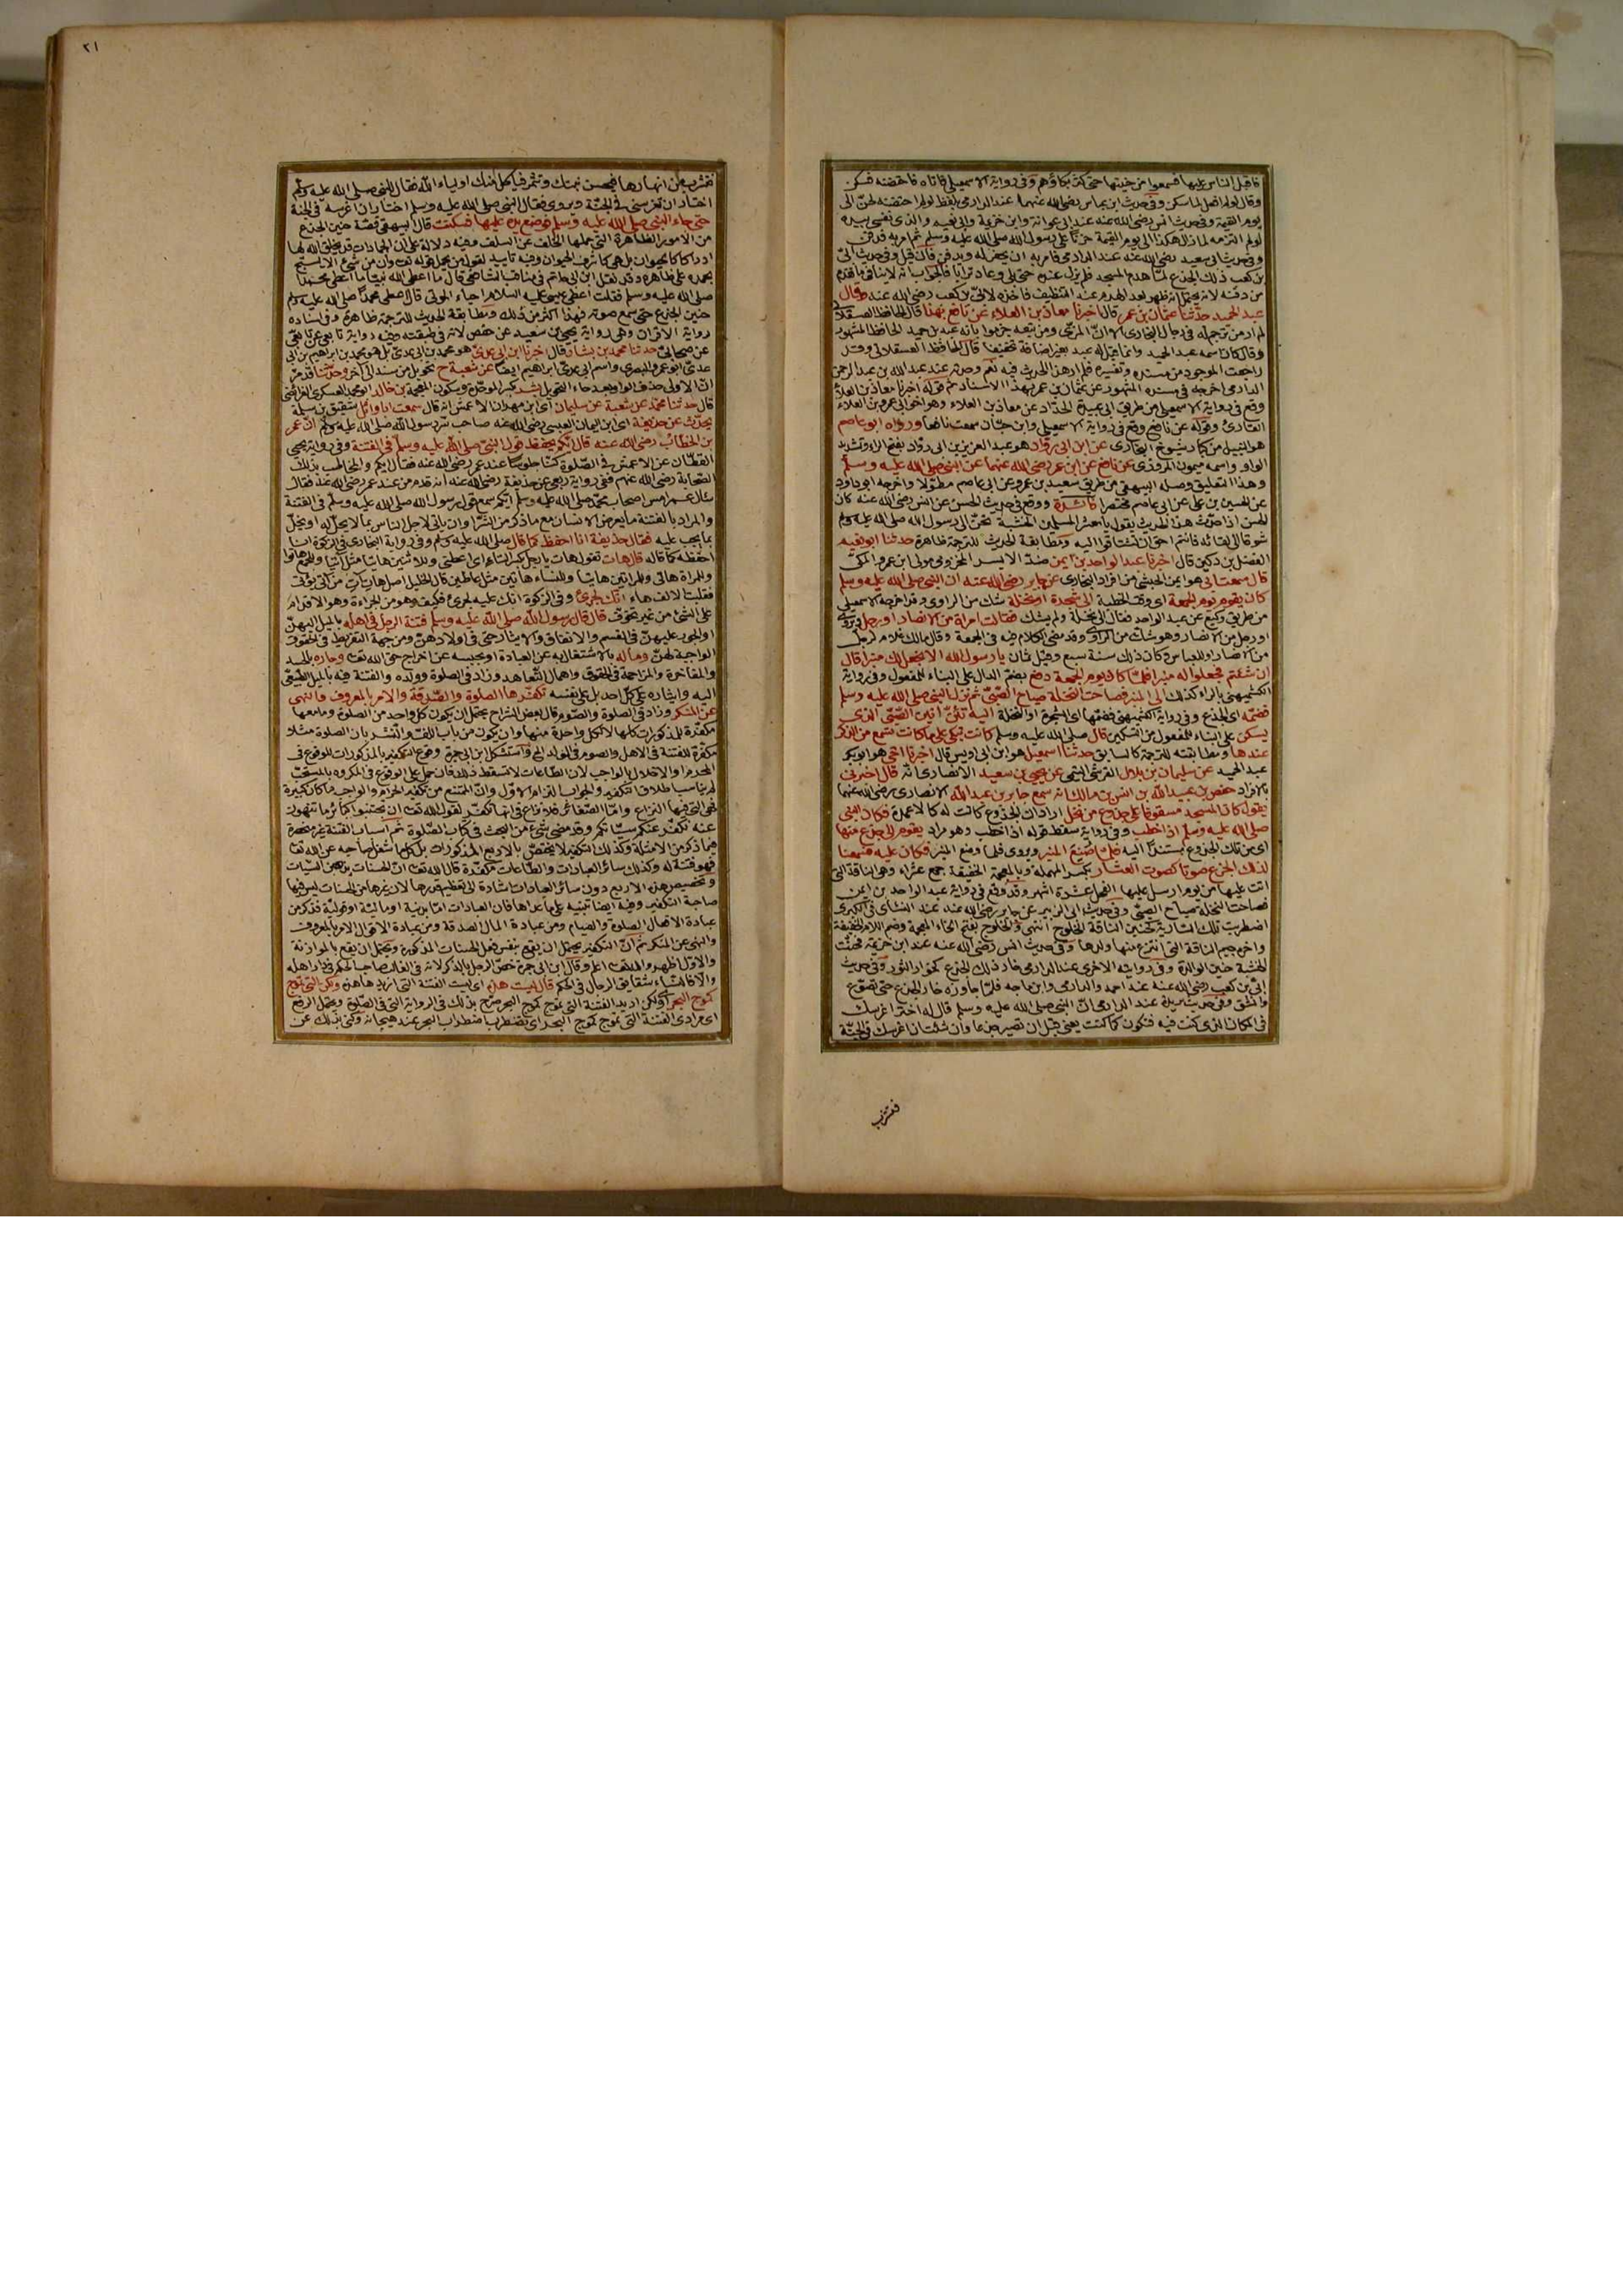 فاقبل الناس عليها فسمعوا من حنينها حتى كثر بكاؤهم وفي رواية الاسمعيلي فاتاه فاحتضنه فسكن
وقال لو لم افعل لما سكن وفي حديث ابن عباس رضي الله عنهما عند الدارمي بلفظ لو لم احتضنه لحن الى
يوم القيمة وفي حديث انس رضي الله عنه عند ابي عوانة وابن خزيمة وابي نعيم والذي نفسي بيده
لو لم التزمه لما زال هكذا الى يوم القيمة حزنا على رسول الله صلى الله عليه وسلم ثم امر به فدفن
وفي حديث ابي سعيد رضي الله عنه عند الدارمي فامر به ان يحفر له ويدفن فان قيل وفي حديث ابي
بن كعب ذلك الجذع لما هدم المسجد فلم يزل عنده حتى بلي وعاد ترابا فالجواب انه لا ينافي ما تقدم
من دفنه لانه يحتمل انه ظهر بعد الهدم عند التنظيف فاخذه لابي بن كعب رضي الله عنه وقال
عبد الحميد حدثنا عثمان بن عمر قال اخبرنا معاذ بن العلاء عن نافع بهذا قال الحافظ العسقلاني
لم ار من ترجم له في رجال البخاري الا ان المزي ومن تبعه جزموا بانه عبد بن حميد الحافظ المشهور
وقال كان اسمه عبد الحميد وانما قيل له عبد بغير اضافة تخفيفا قال الحافظ العسقلاني وقد
راجعت الموجود من مسنده وتفسيره فلم ار هذا الحديث فيه نعم وجدته عند عبد الله بن عبد الرحمن
الدارمي اخرجه في مسنده المشهور عن عثمان بن عمر بهذا الاسناد ثم قوله اخبرنا معاذ بن العلاء
وقع في رواية الاسمعيلي من طريق ابي عبيدة الحداد عن معاذ بن العلاء وهو اخو ابي عمرو بن العلاء
القارئ وقوله عن نافع وقع في رواية الاسمعيلي وابن حبان سمعت نافعا ورواه ابو عاصم
هو النبيل من كبار شيوخ البخاري عن ابن ابي رواد هو عبد العزيز بن ابي رواد بفتح الراء وتشديد
الواو واسمه ميمون المروزي عن نافع عن ابن عمر رضي الله عنهما عن النبي صلى الله عليه وسلم
وهذا التعليق وصله البيهقي من طريق سعيد بن عمرو عن ابي عاصم مطولا واخرجه ابو داود
عن الحسين بن علي عن ابي عاصم مختصرا فائدة ووقع في حديث الحسن عن انس رضي الله عنه كان
الحسن اذا حدث هذا الحديث يقول يا معشر المسلمين الخشبة تحن الى رسول الله صلى الله عليه وسلم
شوقا الى لقائه فانتم احق ان تشتاقوا اليه ومطابقة الحديث للترجمة ظاهرة حدثنا ابو نعيم
الفضل بن دكين قال اخبرنا عبد الواحد بن ايمن ضد الايسر المخزومي مولى ابن عمرو المكي
قال سمعت ابي هو ايمن الحبشي من افراد البخاري عن جابر رضي الله عنه ان النبي صلى الله عليه وسلم
كان يقوم يوم الجمعة اي وقت الخطبة الى شجرة او نخلة شك من الراوي وقد اخرجه الاسمعيلي
من طريق وكيع عن عبد الواحد فقال الى نخلة ولم يشك فقالت امراة من الانصار او رجل
او رجل من الانصار وهو شك من الراوي وقد مضى الكلام فيه في الجمعة وقال مالك غلام لرجل
من الانصار او للعباس وكان ذلك سنة سبع وقيل ثمان يا رسول الله الا نجعل لك منبرا قال
ان شئتم فجعلوا له منبرا فلما كان يوم الجمعة دفع بضم الدال على البناء للمفعول وفي رواية
الكشميهني بالراء كذلك الى المنبر فصاحت النخلة صياح الصبي ثم نزل النبي صلى الله عليه وسلم
فضمه اي الجذع وفي رواية الكشميهني فضمها اي الشجرة او النخلة اليه تئن انين الصبي الذي
يسكن على البناء للمفعول من التسكين قال صلى الله عليه وسلم كانت تبكي على ما كانت تسمع من الذكر
عندها ومطابقته للترجمة كالسابق حدثنا اسمعيل هو ابن ابي اويس قال اخبرنا اخي هو ابو بكر
عبد الحميد عن سليمان بن بلال القرشي التيمي عن يحيى بن سعيد الانصاري انه قال اخبرني
بالافراد حفص بن عبيد الله بن انس بن مالك انه سمع جابر بن عبد الله الانصاري رضي الله عنهما
يقول كان المسجد مسقوفا على جذوع من نخل اراد ان الجذوع كانت له كالاعمدة فكان النبي
صلى الله عليه وسلم اذا خطب وفي رواية سقط قوله اذا خطب وهو مراد يقوم الى جذع منها
اي من تلك الجذوع مستندا اليه فلما صنع المنبر ويروى فلما وضع المنبر فكان عليه فسمعنا
لذلك الجذع صوتا كصوت العشار بكسر المهملة وبالمعجمة الخفيفة جمع عشراء وهي الناقة التي
اتت عليها من يوم ارسل عليها الفحل عشرة اشهر وقد وقع في رواية عبد الواحد بن ايمن
فصاحت النخلة صياح الصبي وفي حديث ابي الزبير عن جابر رضي الله عنه عند النسائي في الكبرى
اضطربت تلك السارية كحنين الناقة الخلوج انتهى والخلوج بفتح الخاء المعجمة وضم اللام الخفيفة
واخره جيم الناقة التي انتزع منها ولدها وفي حديث انس رضي الله عنه عند ابن خزيمة فحنت
الخشبة حنين الوالدة وفي روايته الاخرى عند الدارمي خار ذلك الجذع كخوار الثور وفي حديث
ابي بن كعب رضي الله عنه عند احمد والدارمي وابن ماجه فلما جاوزه خار الجذع حتى تصدع
وانشق وفي حديث بريدة عند الدارمي ان النبي صلى الله عليه وسلم قال له اختر اغرسك
في المكان الذي كنت فيه فتكون كما كنت يعني قبل ان تصير جذعا وان شئت ان اغرسك في الجنة
فتشرب
٢١
فتشرب من انهارها فيحسن نبتك وتثمر فيأكل منك اولياء الله فقال النبي صلى الله عليه وسلم
اختار ان تغرسني في الجنة ويروى فقال النبي صلى الله عليه وسلم اختار ان اغرسه في الجنة
حتى جاء النبي صلى الله عليه وسلم فوضع يده عليها فسكنت قال البيهقي قصة حنين الجذع
من الامور الظاهرة التي حملها الخلف عن السلف وفيه دلالة على ان الجمادات قد يخلق الله لها
ادراكا كالحيوان بل هي كاشرف الحيوان وفيه تأييد لقول من يحمل قوله تعالى وان من شيء الا يسبح
بحمده على ظاهره وقد نقل ابن ابي حاتم في مناقب الشافعي قال ما اعطى الله نبيا ما اعطى محمدا
صلى الله عليه وسلم فقلت اعطى عيسى عليه السلام احياء الموتى قال اعطى محمدا صلى الله عليه وسلم
حنين الجذع حتى سمع صوته فهذا اكثر من ذلك ومطابقة الحديث للترجمة ظاهرة وفي اسناده
رواية الاقران وهي رواية يحيى بن سعيد عن حفص لانه في طبقته وفيه رواية تابعي عن تابعي
عن صحابي حدثنا محمد بن بشار قال اخبرنا ابن ابي عدي هو محمد بن ابي عدي بل هو محمد بن ابراهيم بن ابي
عدي ابو عمرو البصري واسم ابي عدي ابراهيم ايضا عن شعبة ح تحويل من سند الى آخر وحدثنا قد مر
ان الاولى حذف الواو بعد حاء التحويل بشر بكسر الموحدة وسكون المعجمة بن خالد ابو محمد العسكري الفرائضي
قال حدثنا محمد عن شعبة عن سليمان اي ابن مهران الاعمش انه قال سمعت ابا وائل شقيق بن سلمة
يحدث عن حذيفة اي ابن اليمان العبسي رضي الله عنه صاحب سر رسول الله صلى الله عليه وسلم ان عمر
بن الخطاب رضي الله عنه قال ايكم يحفظ قول النبي صلى الله عليه وسلم في الفتنة وفي رواية يحيى
القطان عن الاعمش في الصلوة كنا جلوسا عند عمر رضي الله عنه فقال ايكم والمخاطب بذلك
الصحابة رضي الله عنهم ففي رواية ربعي عن حذيفة رضي الله عنه انه قدم من عند عمر رضي الله عنه فقال
سأل عمر امس اصحاب محمد صلى الله عليه وسلم ايكم سمع قول رسول الله صلى الله عليه وسلم في الفتنة
والمراد بالفتنة ما يعرض للانسان مع ما ذكر من الشر او ان يأتي لاجل الناس بما لا يحل له او يخل
بما يجب عليه فقال حذيفة انا احفظ كما قال صلى الله عليه وسلم وفي رواية البخاري في الزكوة انا
احفظه كما قاله قال هات تقول هات يا رجل بكسر التاء اي اعطني وللاثنين هاتيا مثل آتيا وللجمع هاتوا
وللمراة هاتي وللمراتين هاتيا وللنساء هاتين مثل عاطين قال الخليل اصل هات آت من آتى يؤتي
فقلبت الالف هاء انك لجرئ وفي الزكوة انك عليه لجرئ فكيف وهو من الجراءة وهو الاقدام
على الشيء من غير تخوف قال قال رسول الله صلى الله عليه وسلم فتنة الرجل في اهله بالميل اليهن
او الجور عليهن في القسم والانفاق والايثار حتى في اولادهن ومن جهة التفريط في الحقوق
الواجبة لهن وماله بالاشتغال به عن العبادة او بحبسه عن اخراج حق الله تعالى وجاره بالحسد
والمفاخرة والمزاحمة في الحقوق واهمال التعاهد وزاد في الصلوة وولده والفتنة فيه بالميل الطبيعي
اليه وايثاره على كل احد بل على نفسه تكفرها الصلوة والصدقة والامر بالمعروف والنهي
عن المنكر وزاد في الصلوة والصوم قال بعض الشراح يحتمل ان يكون كل واحد من الصلوة وما معها
مكفرة للمذكورات كلها لا لكل واحدة منها وان يكون من باب اللف والنشر بان الصلوة مثلا
مكفرة للفتنة في الاهل والصوم في الولد الخ واستشكل ابن ابي جمرة وقوع التكفير بالمذكورات للوقوع في
المحرمات والاخلال بالواجب لان الطاعات لا تسقط ذلك فان حمل على الوقوع في المكروه بالمستحب
لم يناسب اطلاق التكفير والجواب التزام الاول وان الممتنع من تكفير الحرام والواجب ما كان كبيرة
فهي التي فيها النزاع واما الصغائر فلا نزاع في انها تكفر لقول الله تعالى ان تجتنبوا كبائر ما تنهون
عنه نكفر عنكم سيئاتكم وقد مضى شيء من البحث في كتاب الصلوة ثم اسباب الفتنة غير منحصرة
فيما ذكر من الامثلة وكذلك التكفير لا يختص بالاربع المذكورات بل كل ما اشغل صاحبه عن الله تعالى
فهو فتنة له وكذلك سائر العبادات والطاعات مكفرة قال الله تعالى ان الحسنات يذهبن السيئات
وتخصيص هذه الاربع دون سائر العبادات اشارة الى تعظيم قدرها لا ان غيرها من الحسنات ليس فيها
صاحبة التكفير وفيه ايضا تنبيه على ما عداها فان العبادات اما بدنية او مالية او قولية فذكر من
عبادة الافعال الصلوة والصيام ومن عبادة المال الصدقة ومن عبادة الاقوال الامر بالمعروف
والنهي عن المنكر ثم ان التكفير يحتمل ان يقع بنفس فعل الحسنات المذكورة ويحتمل ان يقع بالموازنة
والاول اظهر والله تعالى اعلم وقال ابن ابي جمرة خص الرجل بالذكر لانه في الغالب صاحب الحكم في داره واهله
والا فالنساء شقايق الرجال في الحكم قال ليست هذه اي ليست الفتنة التي اريد هذه ولكن التي تموج
كموج البحر اي ولكن اريد الفتنة التي تموج كموج البحر صرح بذلك في الرواية التي في الصلوة ويحتمل الرفع
اي مرادي الفتنة التي تموج كموج البحر اي تضطرب اضطراب البحر عند هيجانه وكنى بذلك عن